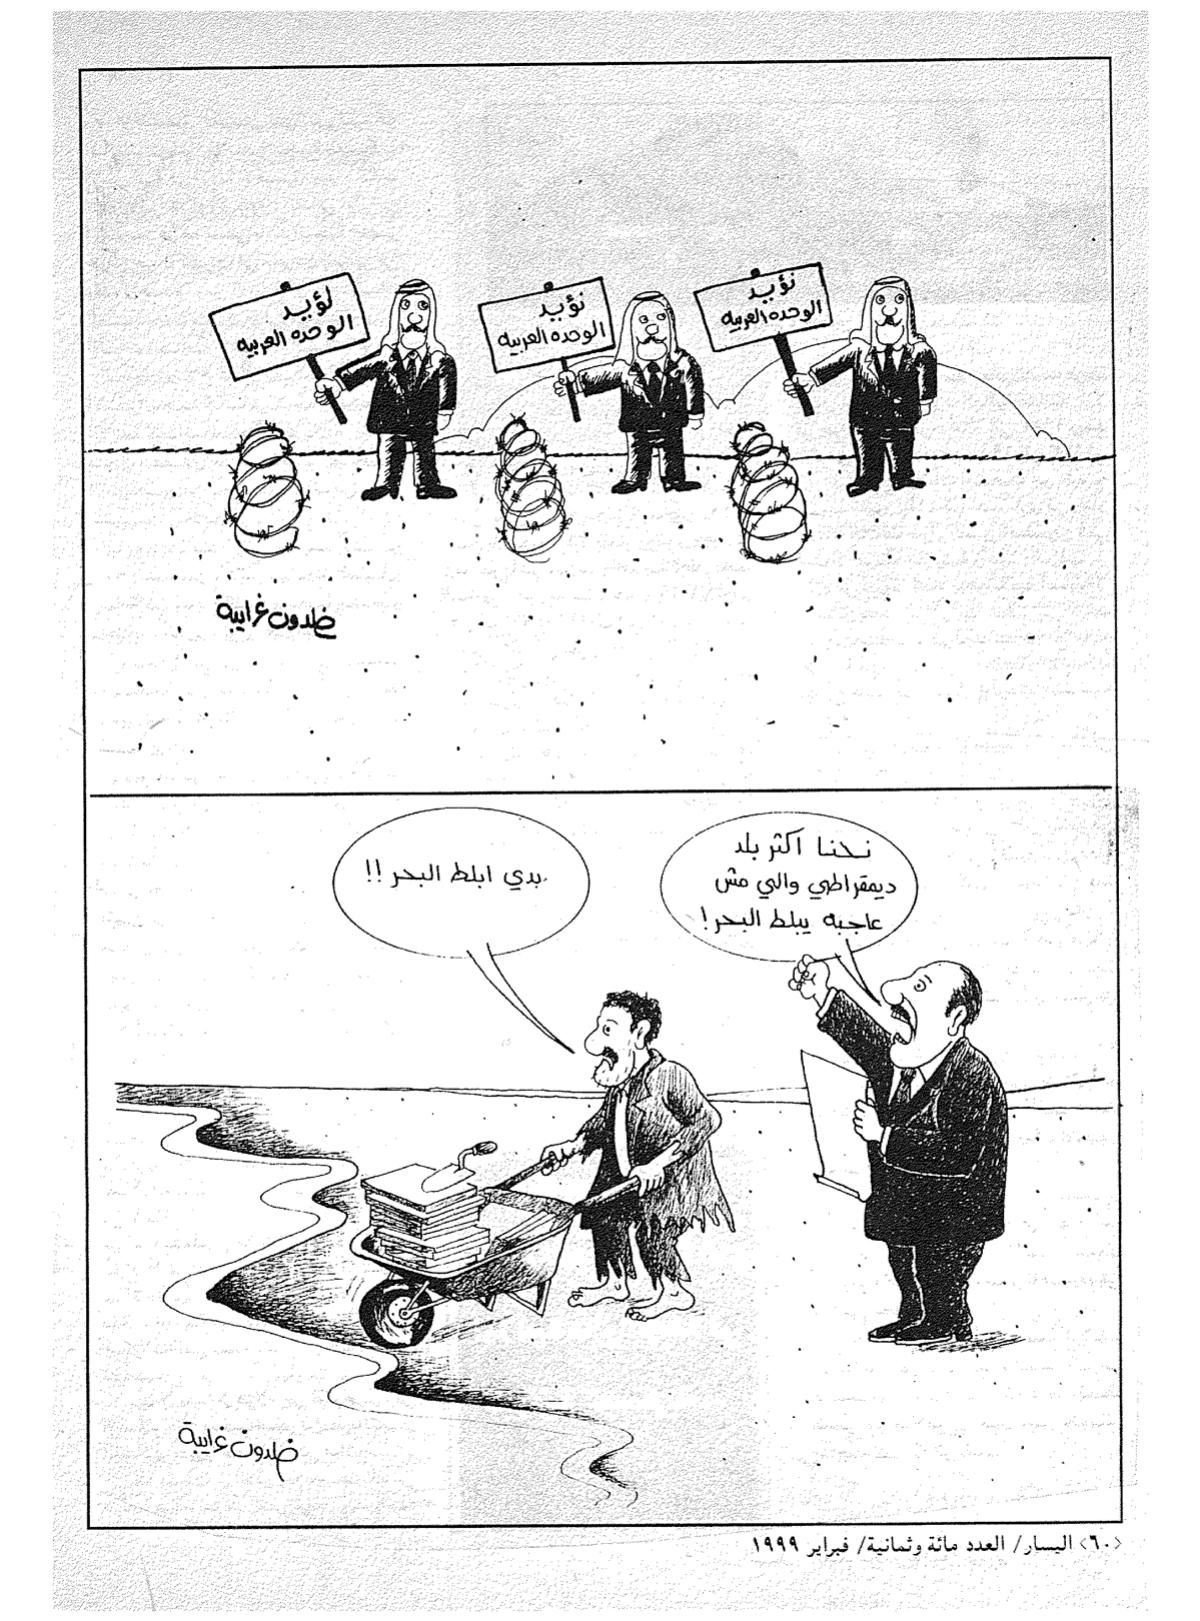 نؤيد
الوحده العربيه
نؤيد
الوحده العربيه
لؤيد
الوحده العربيه
خلدون غرايبة
نحنا اكثر بلد
ديمقراطي والي مش
عاجبه يبلط البحر!
بدي ابلط البحر!!
خلدون غرايبة
<٦٠> اليسار/ العدد مائة وثمانية/ فبراير ١٩٩٩